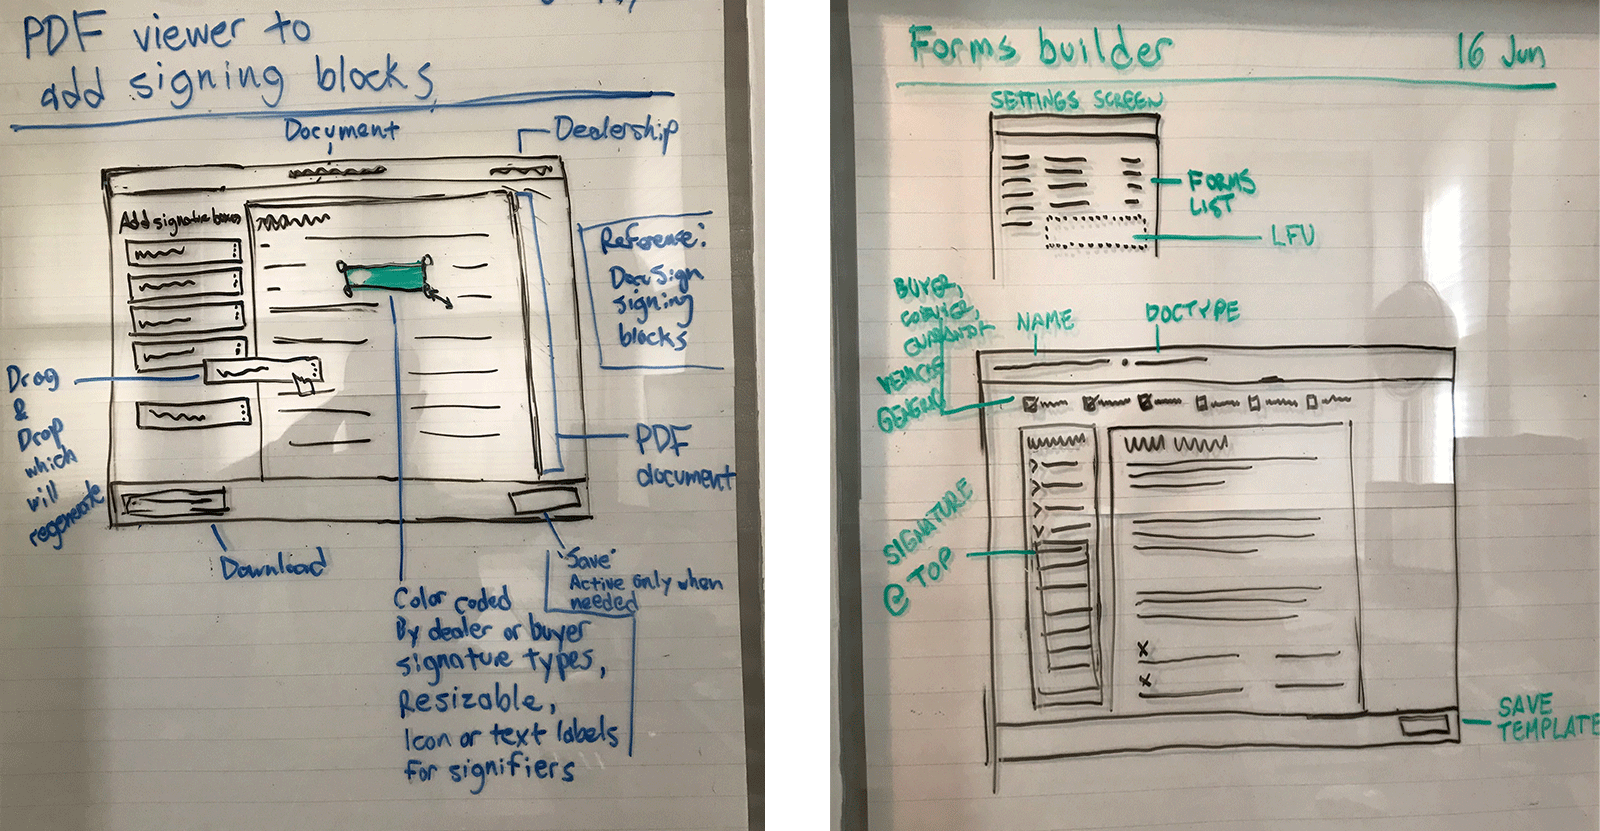 PDF viewer to
add signing blocks
Document
Dealership
Add signature boxes
Reference:
DocuSign
signing
blocks
Drag
&
Drop
which
will
regenerate
PDF
document
Download
"Save"
Active only when
needed
Color coded
By dealer or buyer
signature types,
Resizable,
Icon or text labels
for signifiers
Forms builder
16 Jun
SETTINGS SCREEN
FORMS
LIST
LFU
BUYER,
COBUYER,
GUARANTOR
VEHICLE
GENERIC
NAME
DOCTYPE
SIGNATURE
@ TOP
SAVE
TEMPLATE